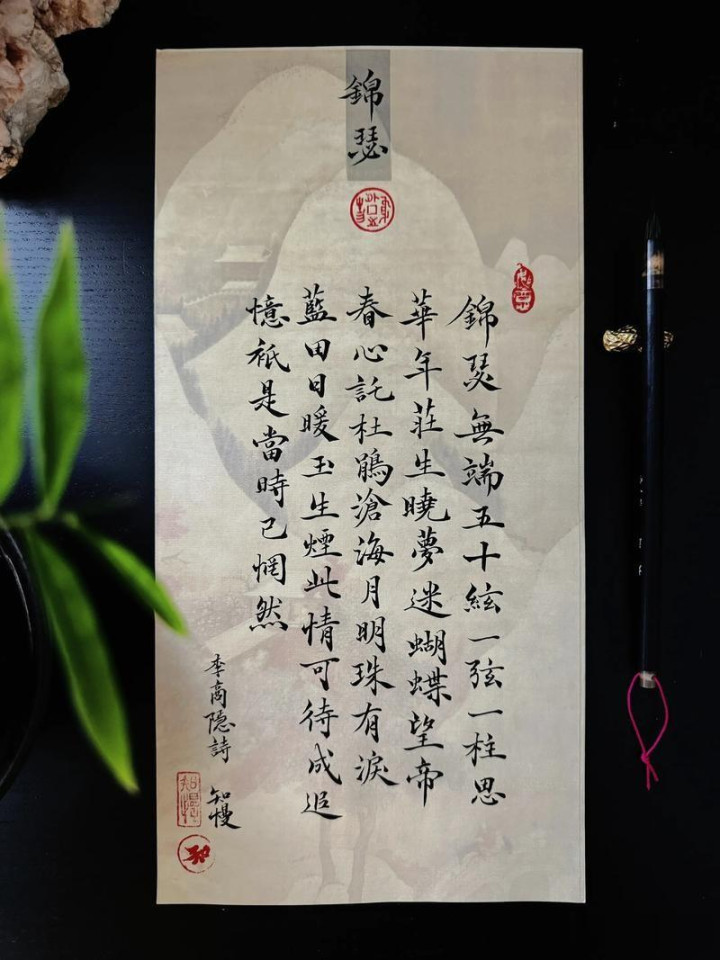 錦瑟
錦瑟無端五十絃一弦一柱思
華年莊生曉夢迷蝴蝶望帝
春心託杜鵑滄海月明珠有淚
藍田日暖玉生煙此情可待成追
憶衹是當時已惘然
李商隐詩
知慢
知慢
知